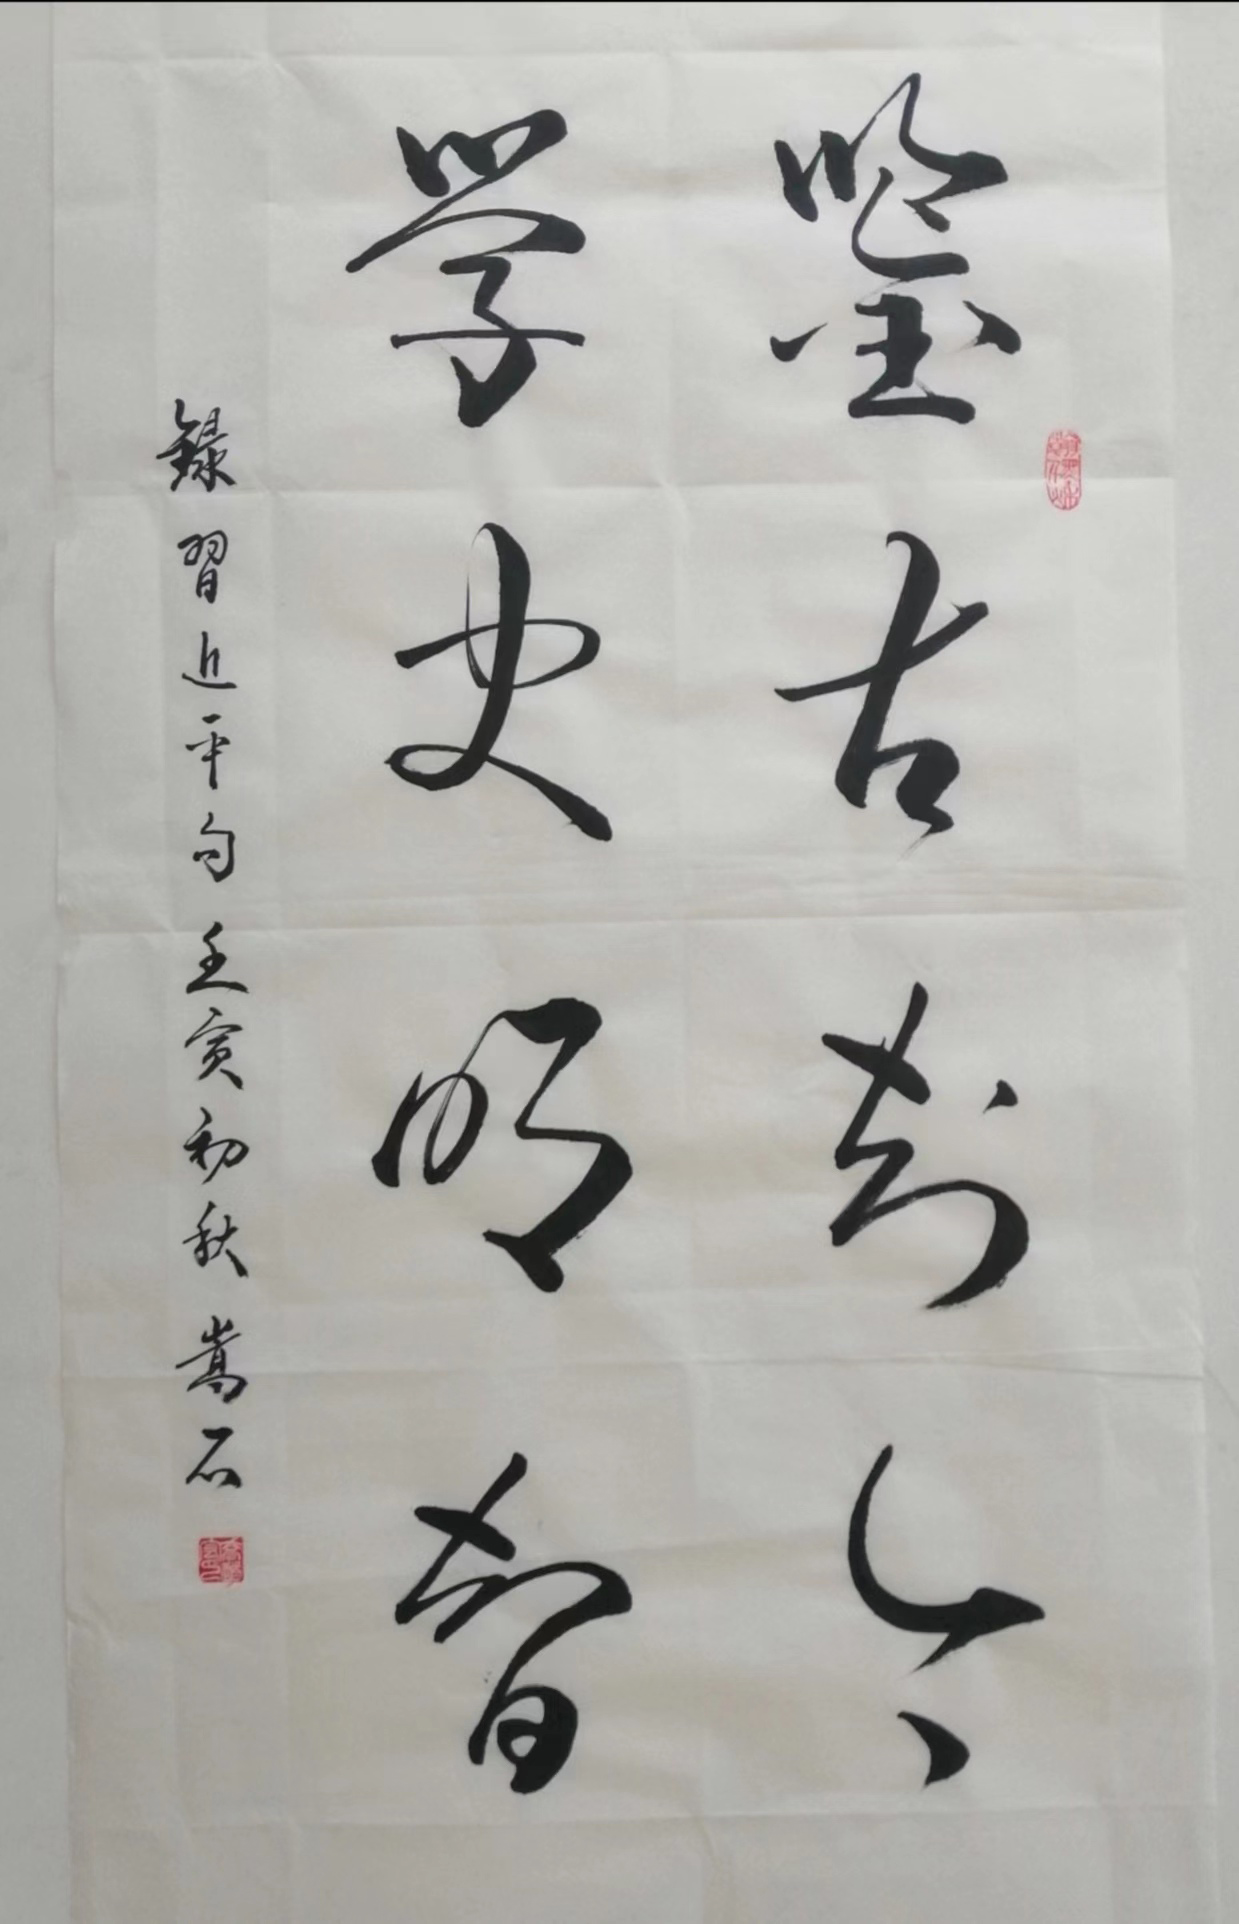 鉴古判今
学史明智
錄習近平句壬寅初秋嵩石